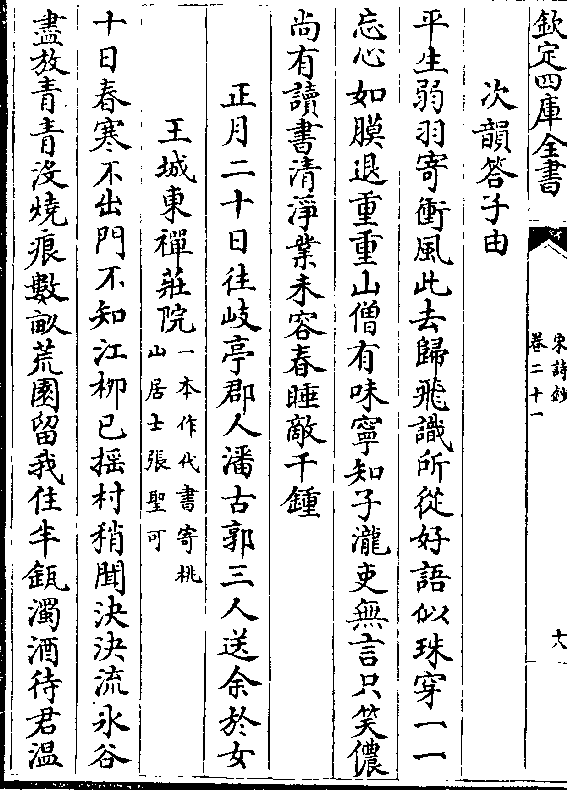 欽定四庫全書
宋詩鈔
卷二十一
十八
次韻答子由
平生弱羽寄衝風此去歸飛識所從好語似珠穿一一
忘心如膜退重重山僧有味寧知子瀧吏無言只笑儂
尚有讀書清淨業未容春睡敵千鍾
正月二十日往岐亭郡人潘古郭三人送余於女
王城東禪莊院
一本作代書寄桃
山居士張聖可
十日春寒不出門不知江栁已揺村稍聞決決流氷谷
盡放青青沒燒痕數畝荒園留我住半缾濁酒待君温